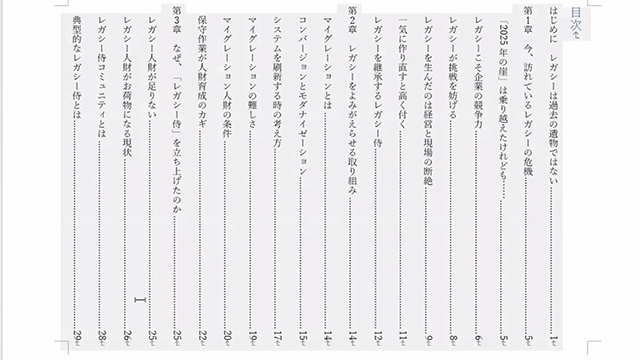 目次
はじめに　レガシーは過去の遺物ではない……1
第1章　今、訪れているレガシーの危機……5
「2025年の崖」は乗り越えたけれども……5
レガシーこそ企業の競争力……6
レガシーが挑戦を妨げる……8
レガシーを生んだのは経営と現場の断絶……9
一気に作り直すと高く付く……11
レガシーを継承するレガシー侍……12
第2章　レガシーをよみがえらせる取り組み……14
マイグレーションとは……14
コンバージョンとモダナイゼーション……15
システムを刷新する時の考え方……17
マイグレーションの難しさ……19
マイグレーション人財の条件……20
保守作業が人財育成のカギ……22
第3章　なぜ、「レガシー侍」を立ち上げたのか……25
レガシー人財が足りない……25
レガシー人財がお荷物になる現状……26
レガシー侍コミュニティとは……28
典型的なレガシー侍とは……29